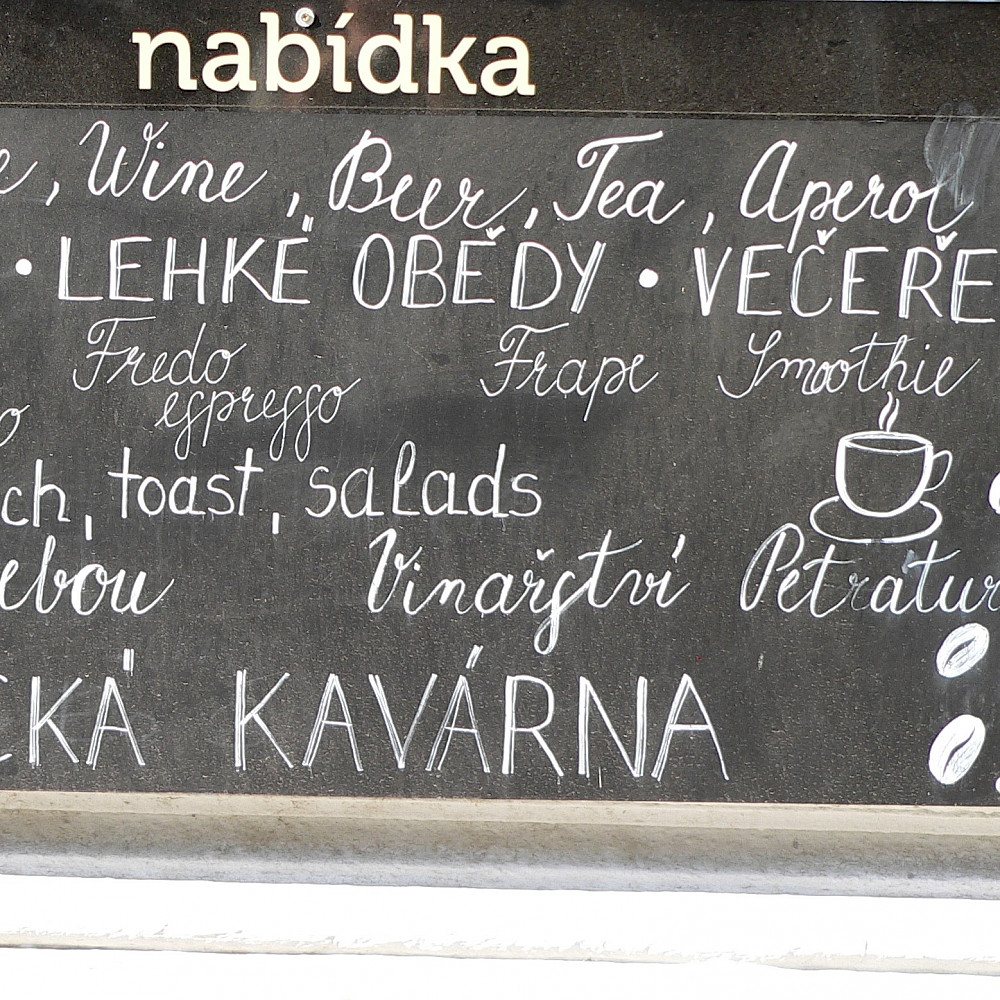 nabídka
, Wine, Beer, Tea, Aperol
• LEHKÉ OBĚDY • VEČEŘE
Fredo Frape Smoothie
espresso
ch, toast, salads
ebou Vinařství Petratur
CKÁ KAVÁRNA